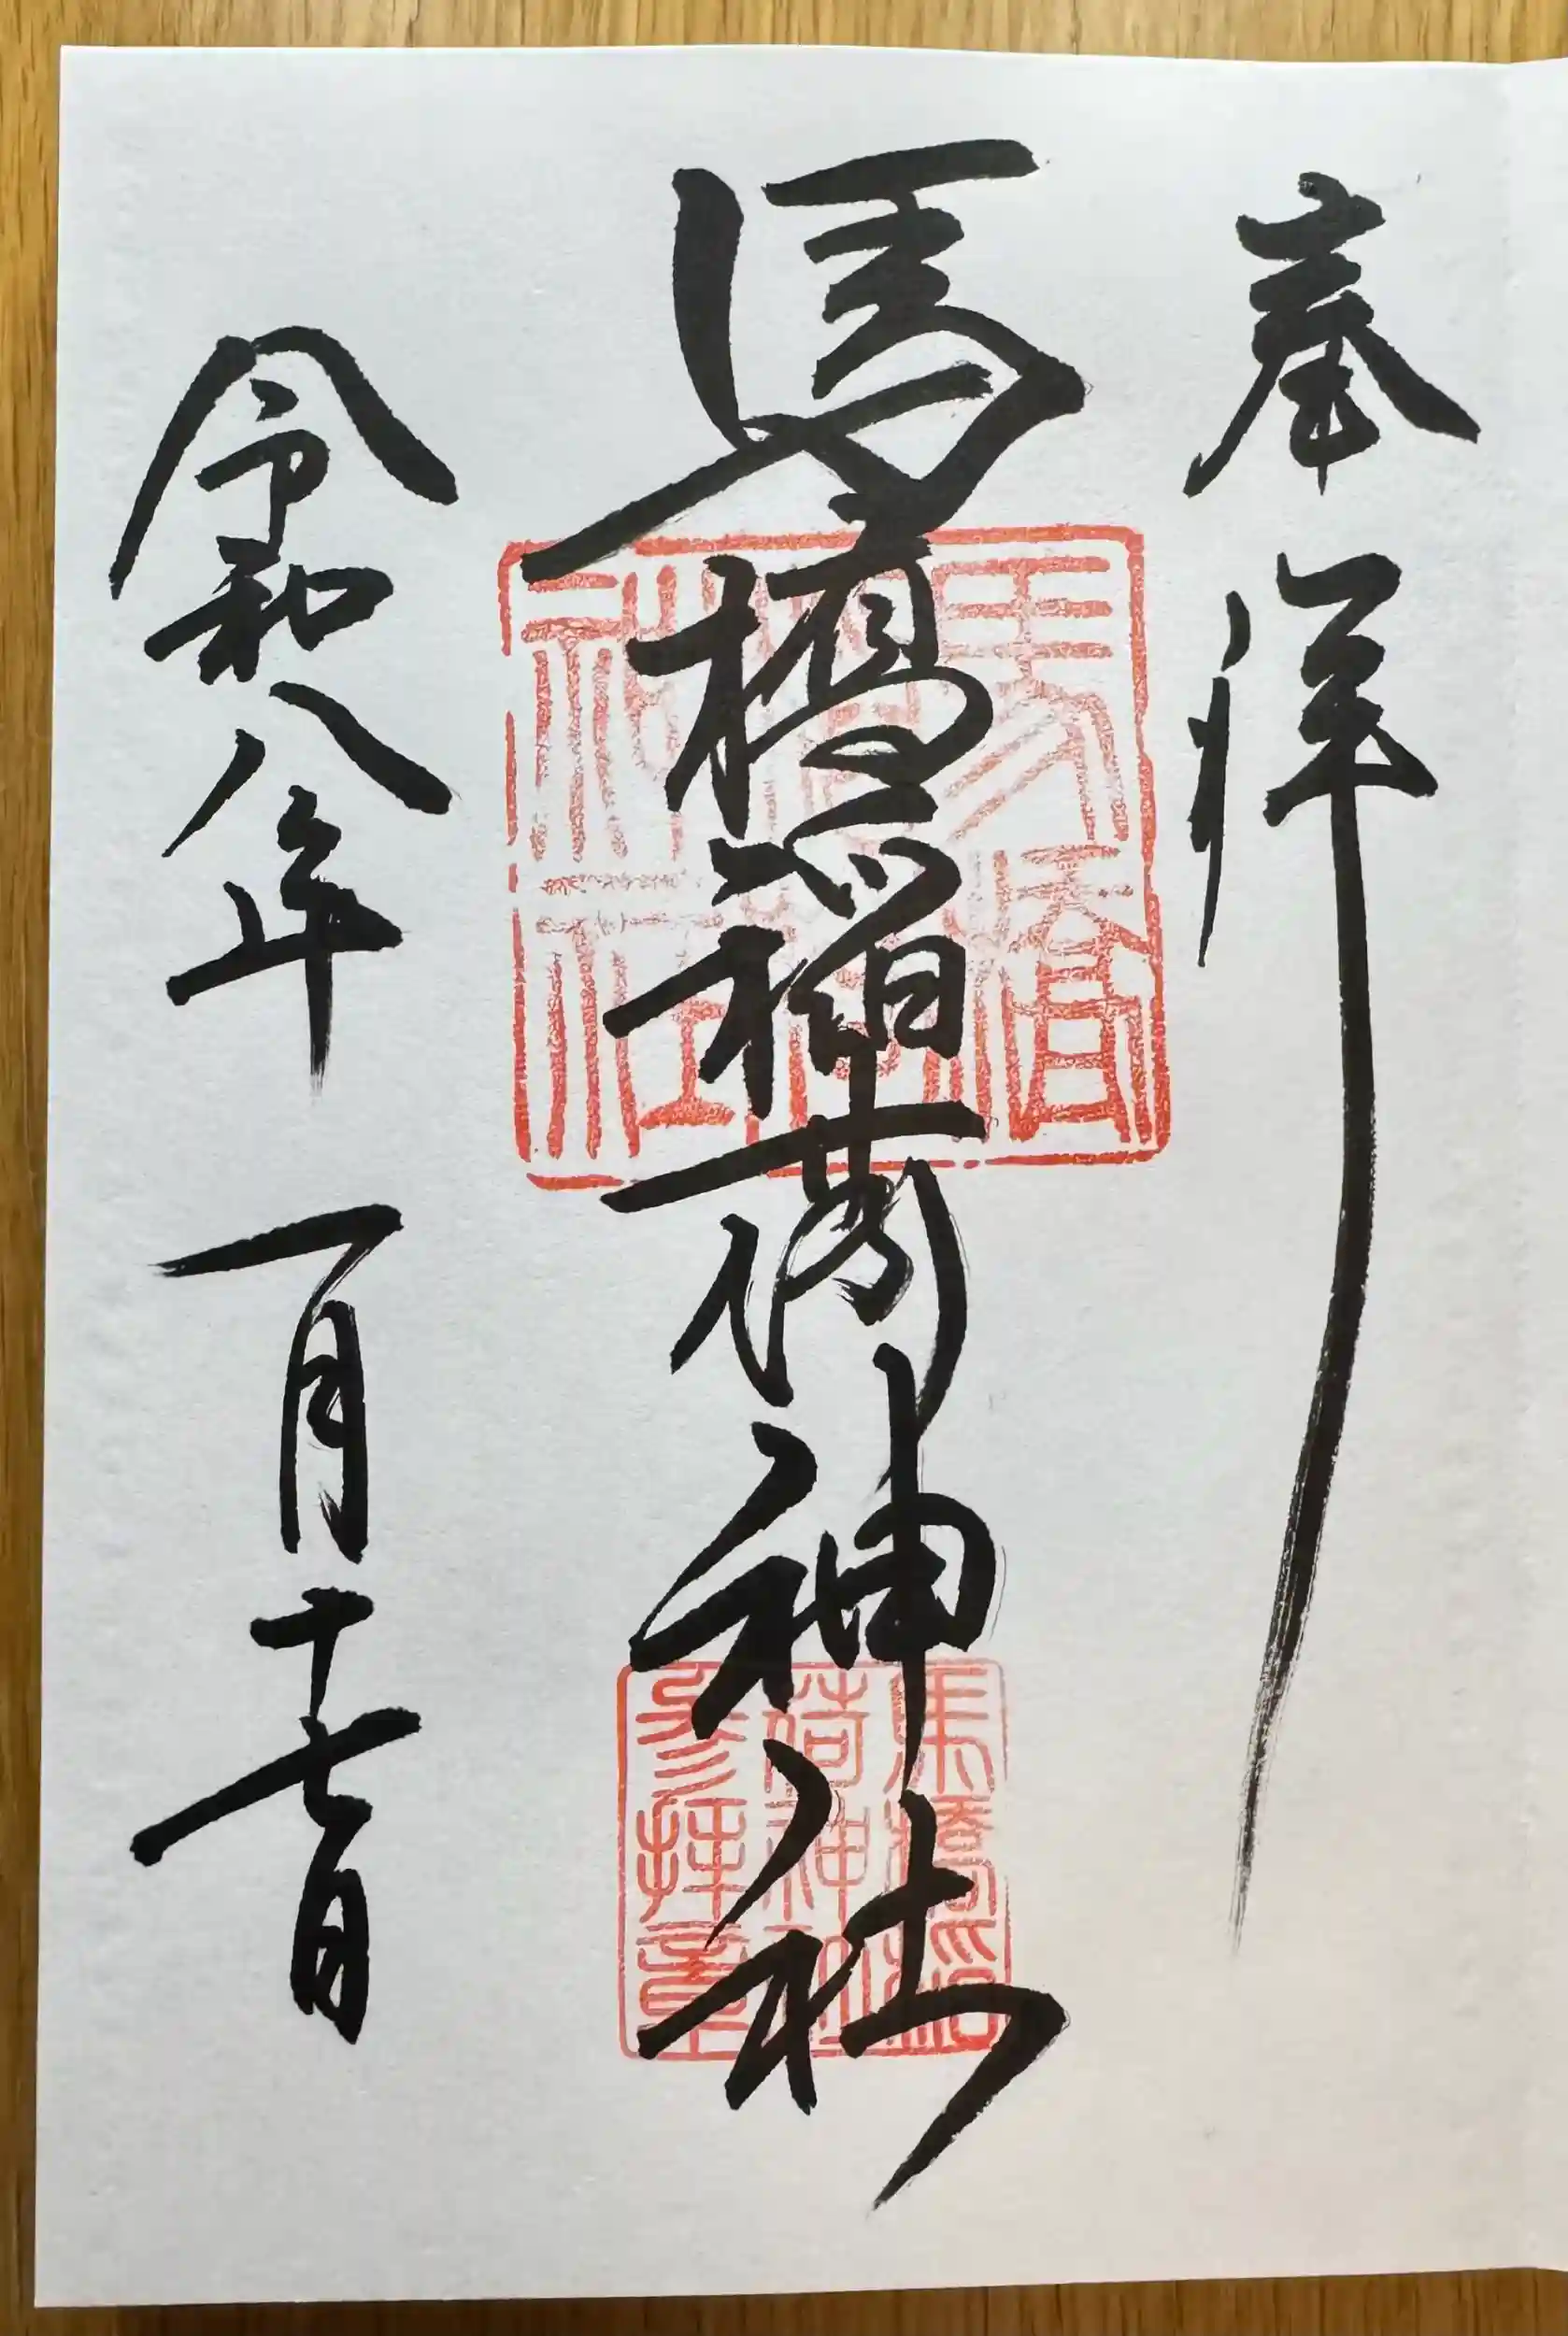 奉拝
馬橋稲荷神社
令和八年 一月十七日
馬橋
神社
馬橋稲
荷神社
参拝章